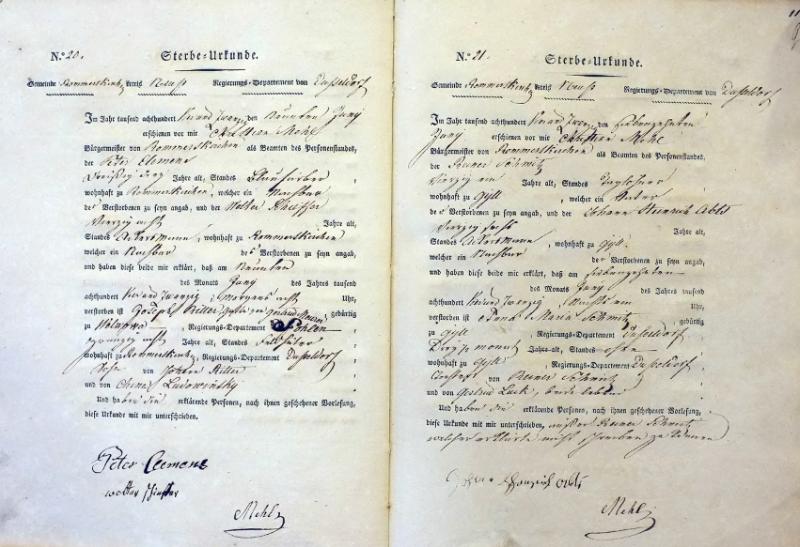 N.º 20.
Sterbe-Urkunde.
Gemeinde Rommerskirch. Kreis Neuß Regierungs-Departement von Dusseldorf
Im Jahr tausend achthundert zwanzig den Neunten Juny
erschienen vor mir Christian Mehl
Bürgermeister von Rommerskirchen als Beamten des Personenstandes,
der Peter Clemens
Dreißig drey Jahre alt, Standes
wohnhaft zu Rommerskirchen, welcher ein Nachbar
des Verstorbenen zu seyn angab, und der Wolter Schieffer
Vierzig acht Jahre alt,
Standes Ackersmann, wohnhaft zu Rommerskirchen
welcher ein Nachbar des Verstorbenen zu seyn angab,
und haben diese beide mir erklärt, daß am Neunten
des Monats Juny des Jahres tausend
achthundert zwanzig, Morgens acht Uhr,
verstorben ist Joseph Ritter gebürtig
zu Regierungs-Departement Pohlen
zwanzig acht Jahre alt, Standes
wohnhaft zu Rommerskirch, Regierungs-Departement Dusseldorf
von Johan Ritter
und von
Und haben die erklärende Personen, nach ihnen geschehener Vorlesung,
diese Urkunde mit mir unterschrieben.
Peter Clemens
wolter schieffer
Mehl
N.º 21.
Sterbe-Urkunde.
Gemeinde Rommerskirch. Kreis Neuß Regierungs-Departement von Dusseldorf
Im Jahr tausend achthundert zwanzig den Siebenzehnten
Juny erschienen vor mir Christian Mehl
Bürgermeister von Rommerskirchen als Beamten des Personenstandes,
der Reiner Schmitz
Vierzig ein Jahre alt, Standes Taglöhner
wohnhaft zu Gyll, welcher ein Vater
der Verstorbenen zu seyn angab, und der Johann Heinrich Abts
Vierzig sechs Jahre alt,
Standes Ackersmann, wohnhaft zu Gyll
welcher ein Nachbar der Verstorbenen zu seyn angab,
und haben diese beide mir erklärt, daß am Siebenzehnten
des Monats Juny des Jahres tausend
achthundert zwanzig, Nachts ein Uhr,
verstorben ist Anna Maria Schmitz gebürtig
zu Gyll, Regierungs-Departement Dusseldorf
Monat Jahre alt, Standes ohne
wohnhaft zu Gyll, Regierungs-Departement Dusseldorf
von Reiner Schmitz
und von Gertrud Lück, beide leben
Und haben die erklärende Personen, nach ihnen geschehener Vorlesung,
diese Urkunde mit mir unterschrieben, außer Reiner Schmitz
welcher erklärte nicht schreiben zu können
Heinrich abts
Mehl